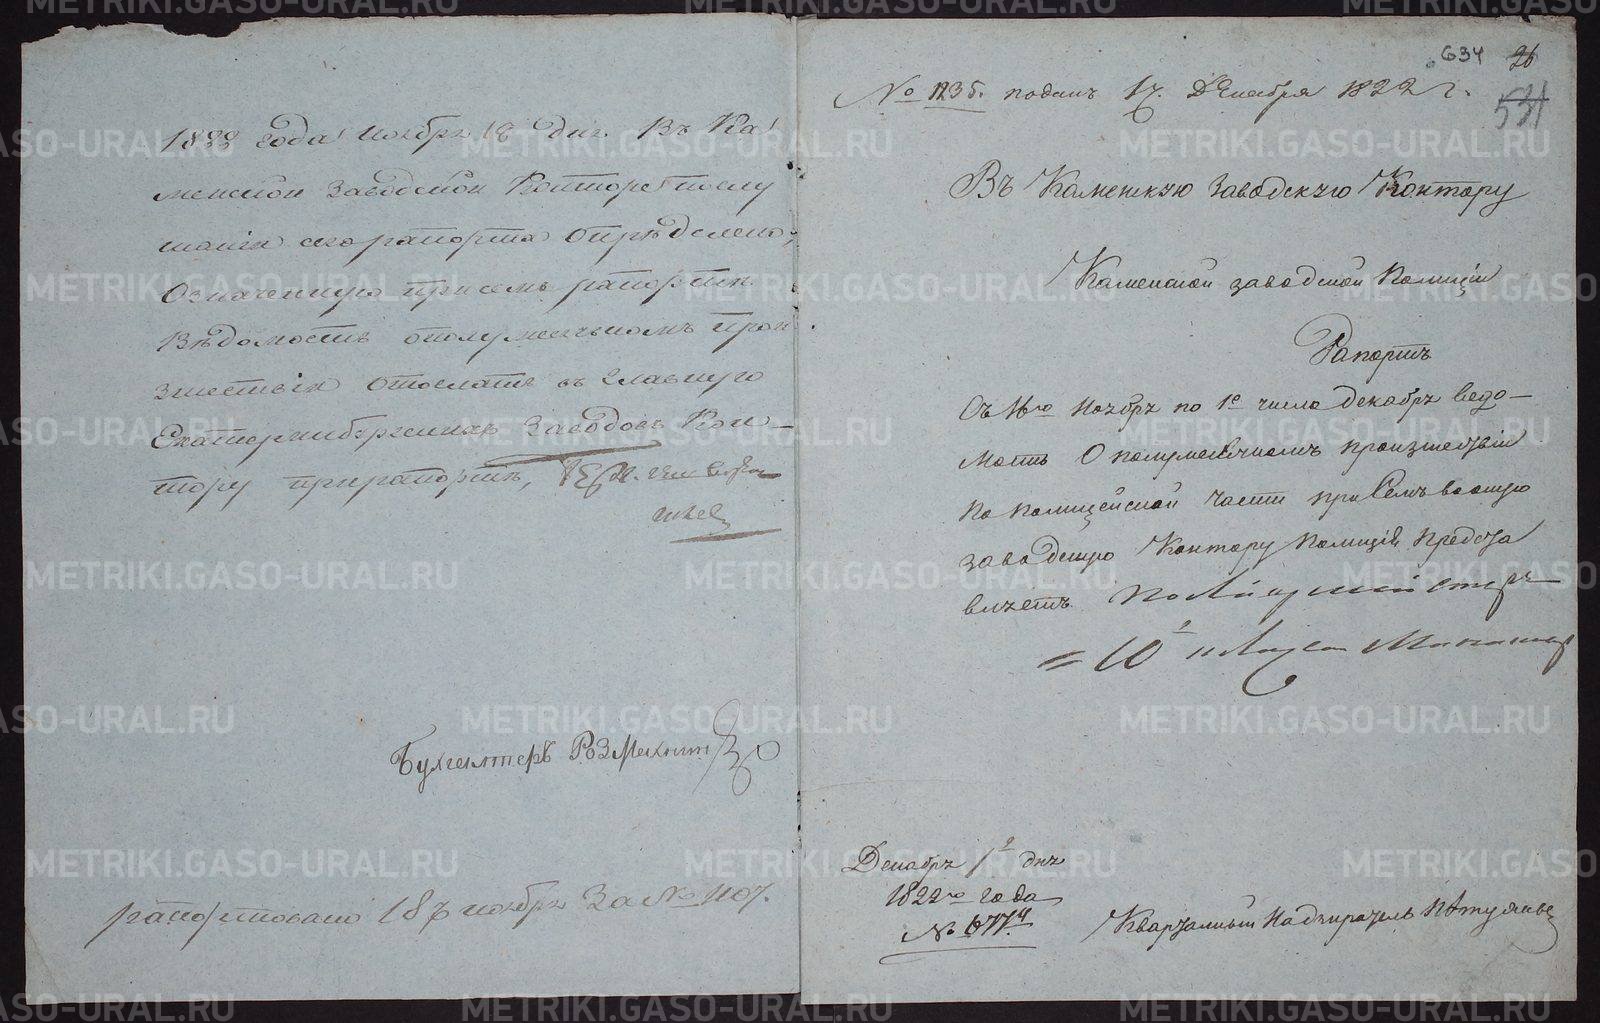 1822 года Ноября 18 дня. Въ Ка
менской Заводской Конторе послу
шания сего рапорта Определено,
Означенную присемъ рапорте
Вѣдомость ополумесечномъ прои
зшествіи Отослать въ Главную
Екатеринбургскихъ Заводовъ Кон-
тору прирапорте,
Бухгалтеръ
рапортовано 18 ъ ноября За № 1107.
634 26
531
№ 1236. поданъ 17. Декабря 1822 г.
Въ Каменскую Заводскую Контору
Каменской заводской Полиціи
Рапортъ
Съ 16го Ноября по 1е число декабря ведо-
мость О полумесечномъ произшествіи
по полицейской части при Семъ вооную
заводскую Контору Полиція Предста
вляетъ
Декабря 1 дня
1822го года
№ 677й
Квартальный Надзиратель
METRIKI.GASO-URAL.RU